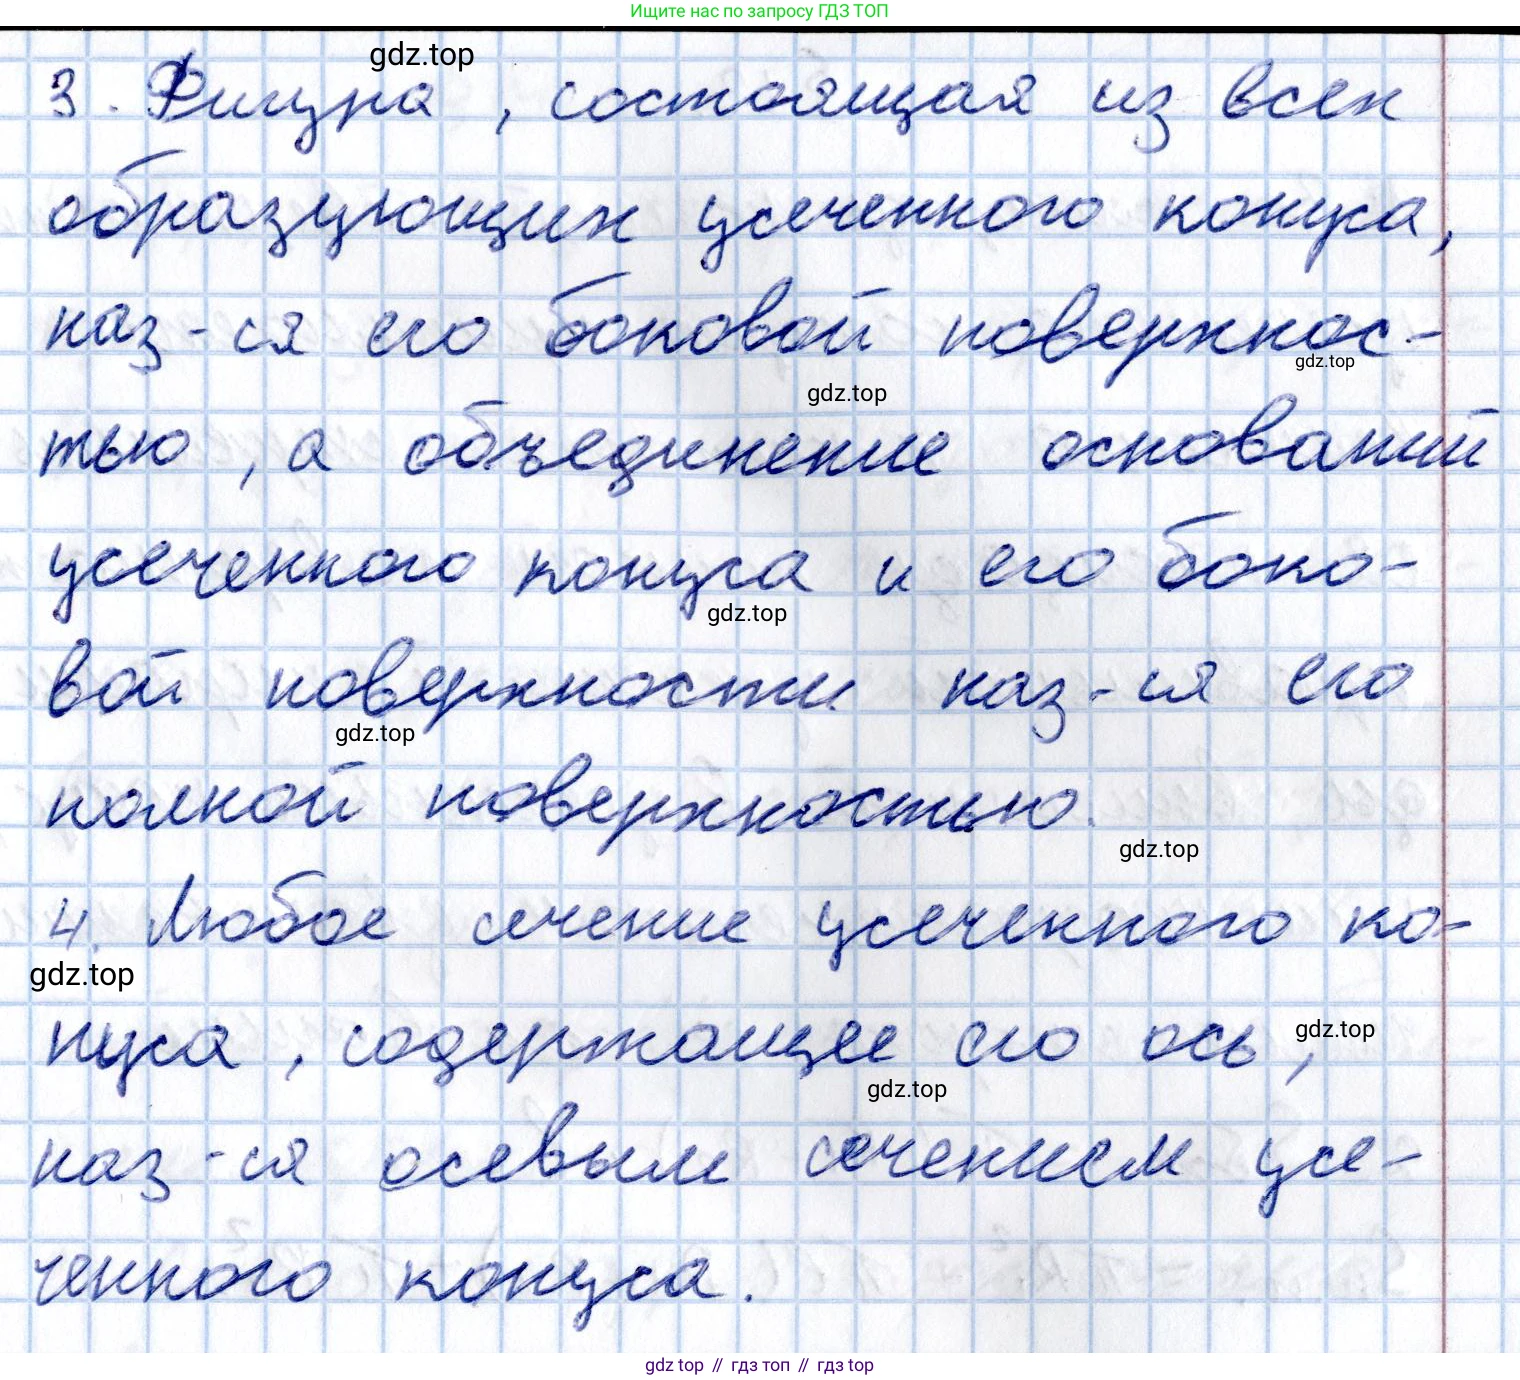 Ищите нас по запросу ГДЗ ТОП
gdz.top
3. Фигура, состоящая из всех
образующих усеченного конуса,
наз-ся его боковой поверхнос-
gdz.top
gdz.top
тью, а объединение оснований
усеченного конуса и его боко-
gdz.top
вой поверхности наз-ся его
gdz.top
полной поверхностью.
gdz.top
4. Любое сечение усеченного ко-
gdz.top
нуса, содержащее его ось,
gdz.top
gdz.top
наз-ся осевым сечением усе-
ченного конуса.
gdz top // гдз топ // гдз top